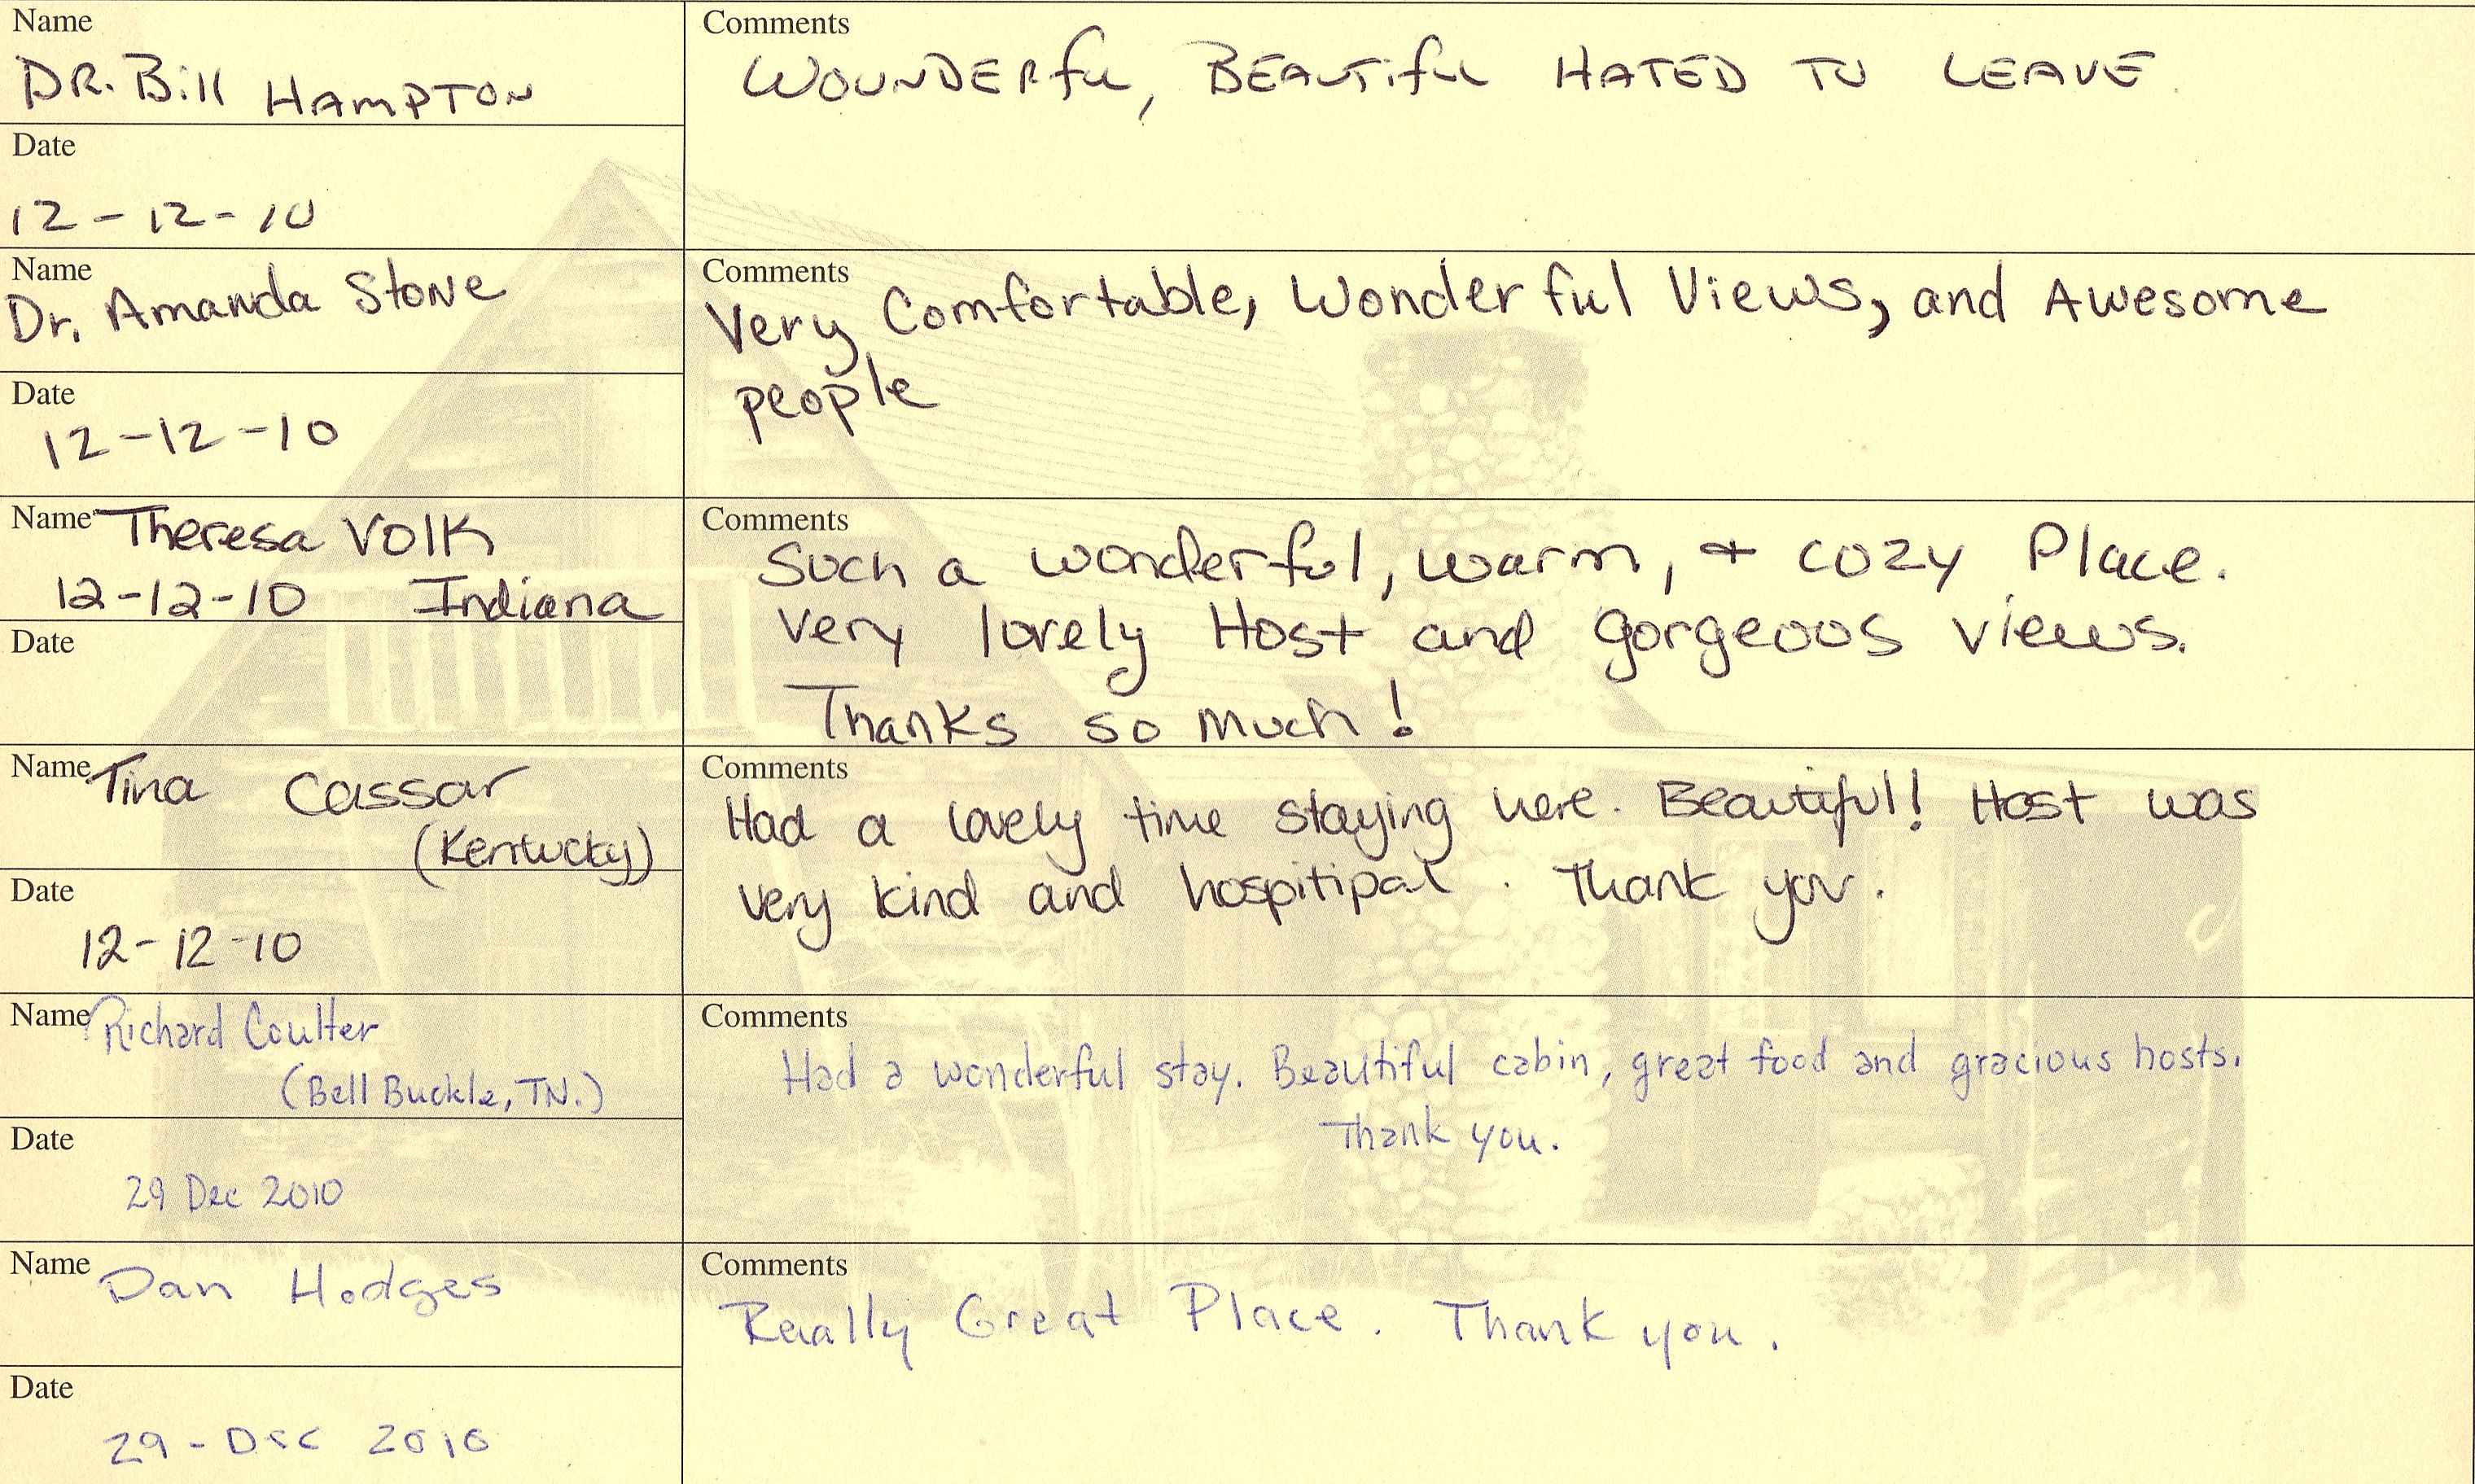 Name
DR. Bill HAMPTON
Comments
WOUNDERful, BEAUTiful HATED TO LEAVE.
Date
12-12-10
Name
Dr. Amanda Stone
Comments
Very Comfortable, Wonderful Views, and Awesome
people
Date
12-12-10
Name Theresa Volk
12-12-10 Indiana
Comments
Such a wonderful, warm, + cozy Place.
Very lovely Host and gorgeous views.
Thanks so much!
Date
Name Tina Cassar
(Kentucky)
Comments
Had a lovely time staying here. Beautiful! Host was
very kind and hospitipal. Thank you.
Date
12-12-10
Name Richard Coulter
(Bell Buckle, TN.)
Comments
Had a wonderful stay. Beautiful cabin, great food and gracious hosts.
Thank you.
Date
29 Dec 2010
Name Dan Hodges
Comments
Really Great Place. Thank you.
Date
29-Dec 2010